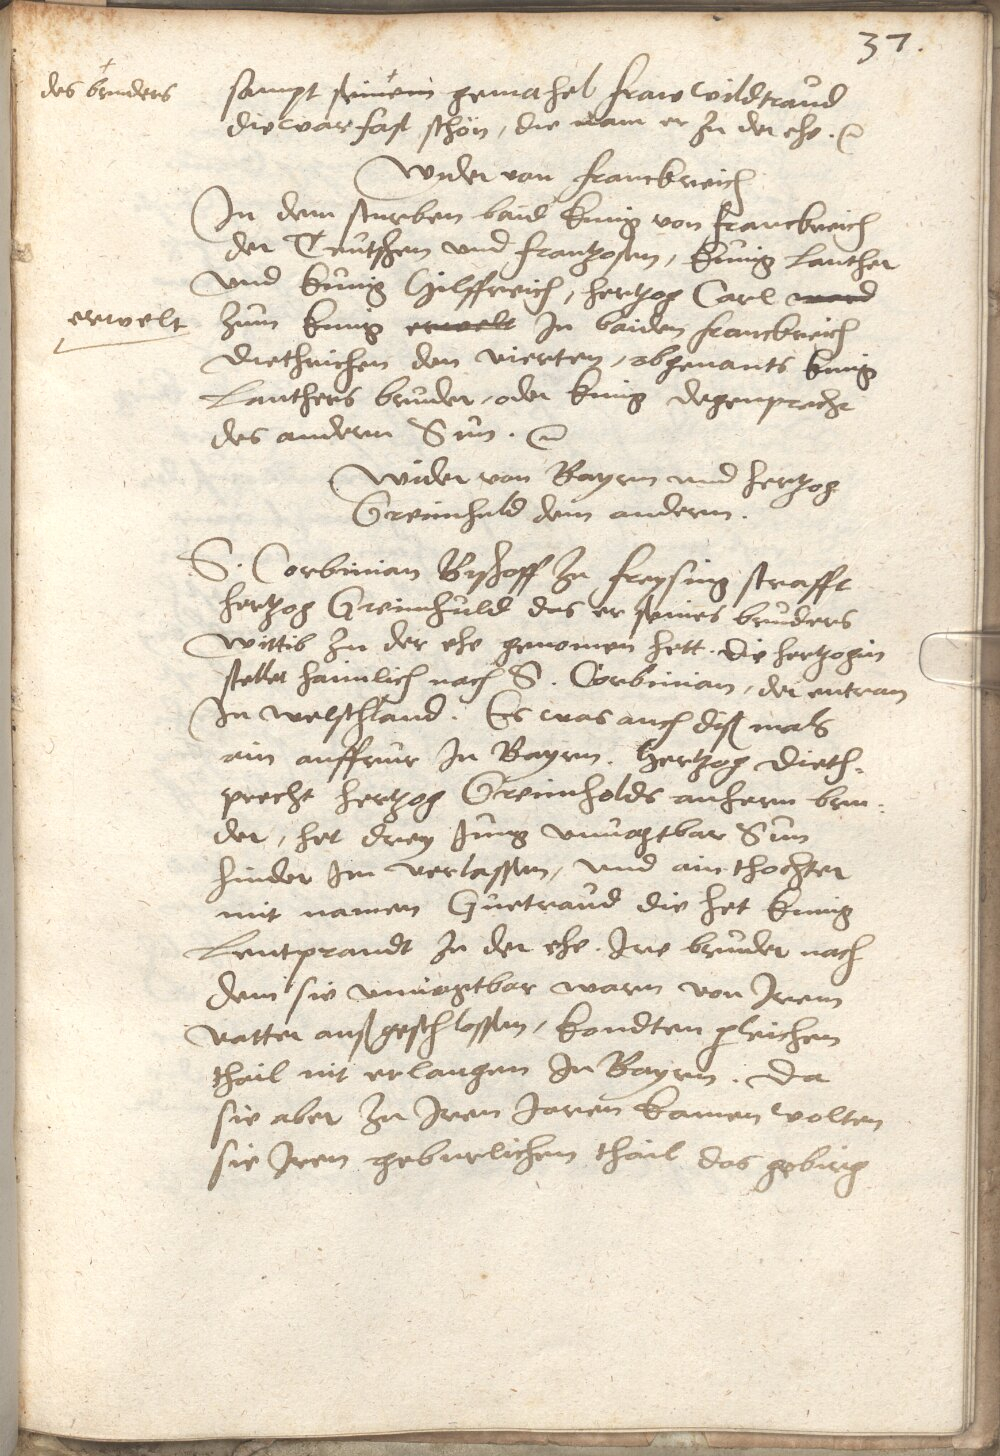 37.
des bruders
sampt seinem gemahel fraw Wildtraud
die war fast schön, die nam er zu der ehe.
Wider von franckreich
In dem sturben baid künig von franckreich
der Teutschen und frantzosen, künig Lauther
und künig Hilffreich, hertzog Carl ward
erwelt
zum künig erwelt In baiden franckreich
Diethrichen den vierten, obgenants künig
Lauthers bruder, oder künig Degenprecht
des andern Sun.
Wider von Bayrn und hertzog
Greimhold dem andern.
S. Corbinian Bischoff zu freysing strafft
hertzog Greimhuld das er seines bruders
wittib zu der ehe genomen hett. die hertzogin
stellet haimlich nach S. Corbinian, der entran
In welschland. Es was auch diß mals
ain auffrur In Bayrn. Hertzog Dieth-
precht hertzog Greimholds anherrn bru-
der, het drey Jung unvogtbar Sün
hinder Im verlassen, und ain thochter
mit namen Guetraud die het künig
Leutprandt zu der ehe. Ire brüder nach
dem sie unvogtbar warn von Irem
vatter außgeschlossen, kondten gleichen
thail nit erlangen In Bayrn. Da
sie aber zu Iren Jaren kamen wolten
sie Iren geburlichen thail das gebirg